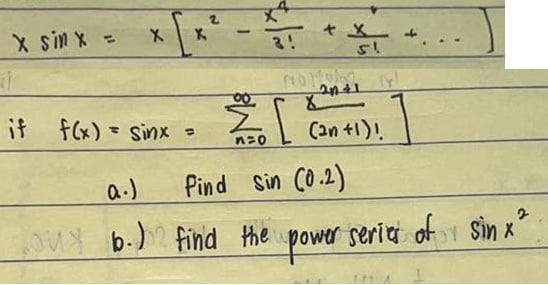 x sin x = x [ x² - x⁴/3! + x/5! + . . . ]
if f(x) = sinx = ∞ Σ n=0 [ x^2n+1 / (2n+1)! ]
a.) find sin (0.2)
b.) find the power series of sin x²